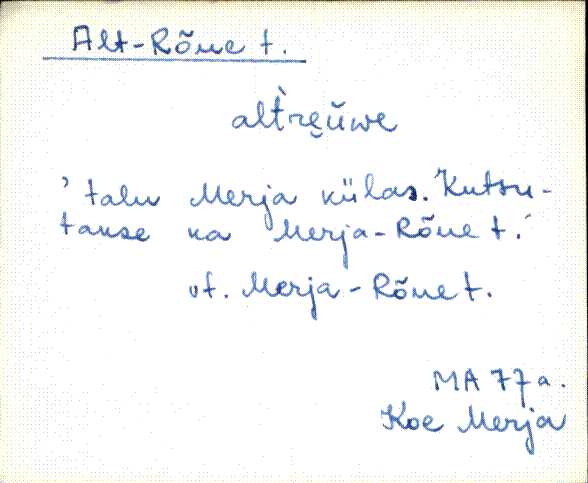 Alt-Rõue t.
alt̀re̮ŭwe
’talu Merja külas. Kutsu-
takse ka Merja-Rõue t.’
vt. Merja-Rõue t.
MA 77a.
Koe Merja